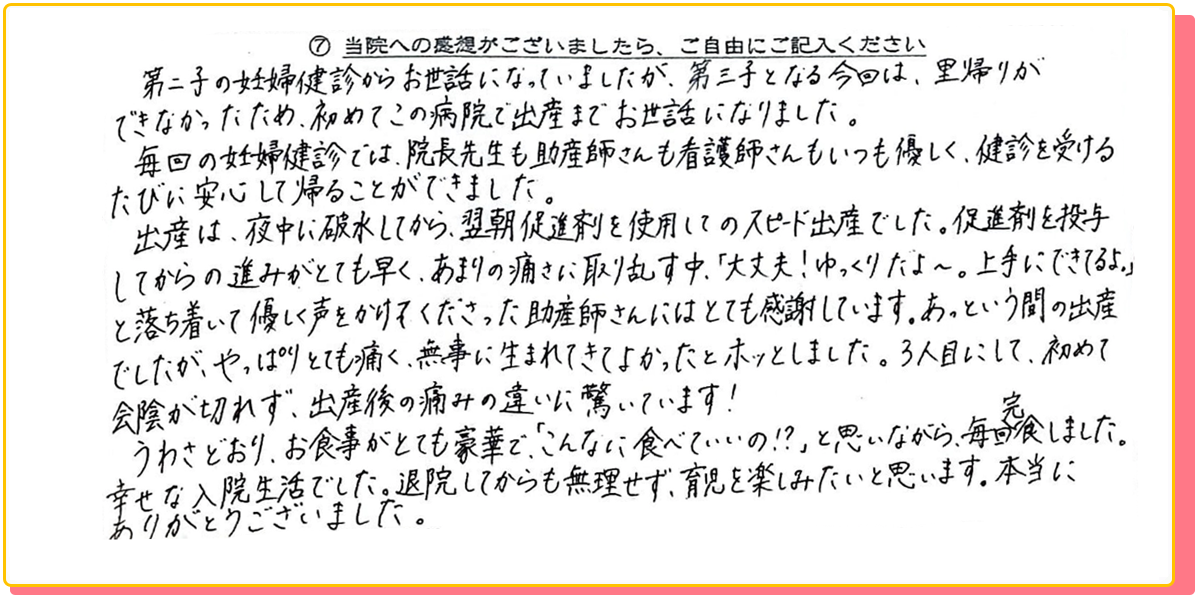 ⑦ 当院への感想がございましたら、ご自由にご記入ください
第二子の妊婦健診からお世話になっていましたが、第三子となる今回は、里帰りが
できなかったため、初めてこの病院で出産までお世話になりました。
毎回の妊婦健診では、院長先生も助産師さんも看護師さんもいつも優しく、健診を受ける
たびに安心して帰ることができました。
出産は、夜中に破水してから、翌朝促進剤を使用してのスピード出産でした。促進剤を投与
してからの進みがとても早く、あまりの痛さに取り乱す中、「大丈夫！ゆっくりだよ～。上手にできてるよ。」
と落ち着いて優しく声をかけてくださった助産師さんにはとても感謝しています。あっという間の出産
でしたが、やっぱりとても痛く、無事に生まれてきてよかったとホッとしました。3人目にして、初めて
会陰が切れず、出産後の痛みの違いに驚いています！
うわさどおり、お食事がとても豪華で、「こんなに食べていいの！？」と思いながら、毎回完食しました。
幸せな入院生活でした。退院してからも無理せず、育児を楽しみたいと思います。本当に
ありがとうございました。